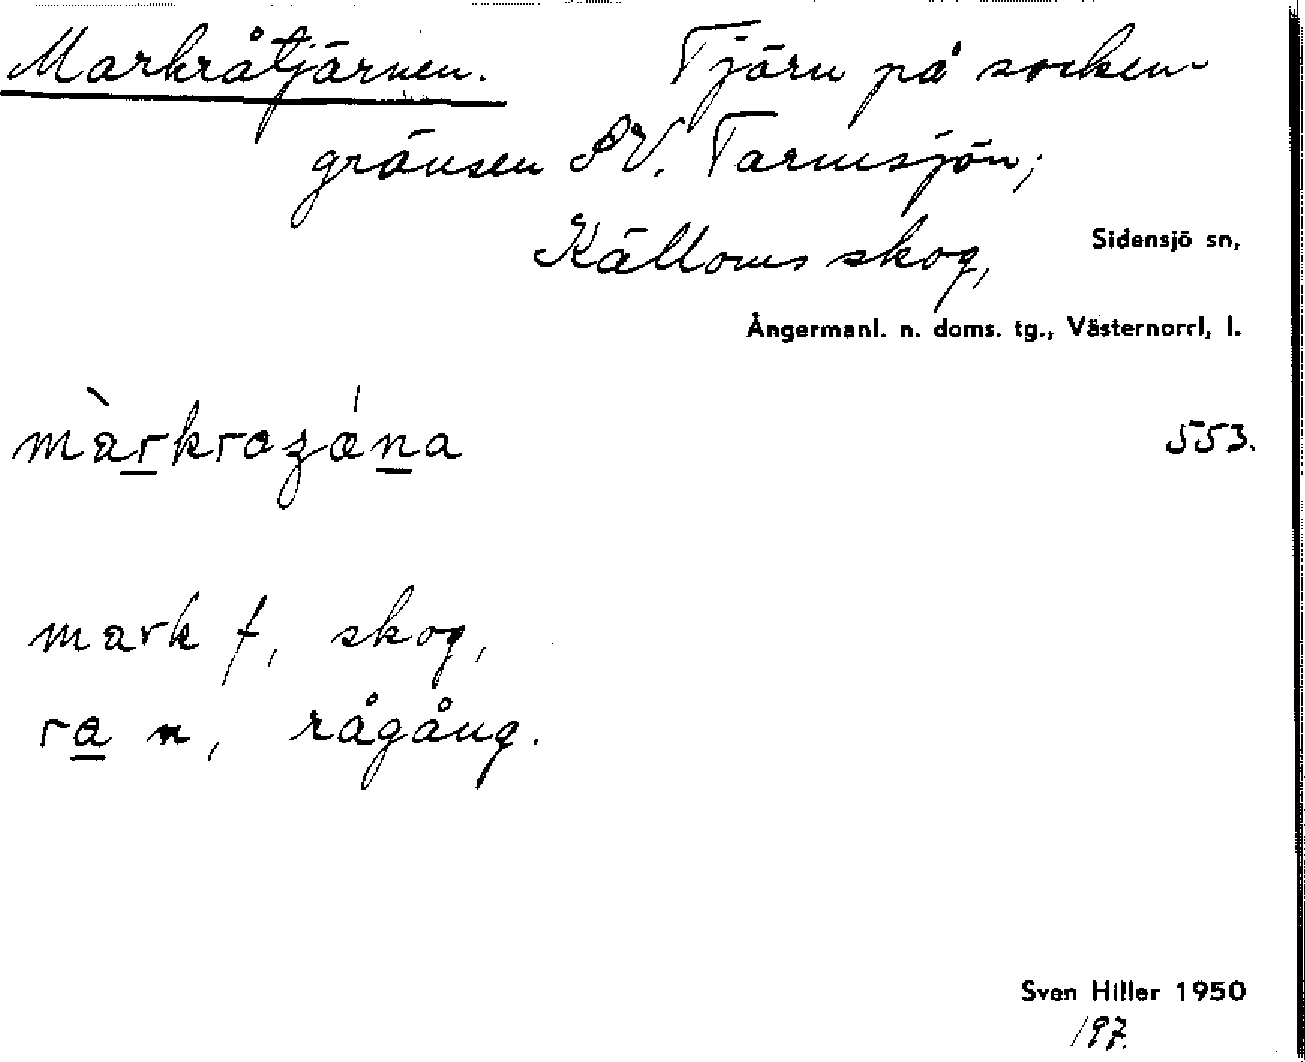 Markråtjärnen. Tjärn på socken-
gränsen SV. Tarmsjön;
Källoms skog,
Sidensjö sn,
Ångermanl. n. doms. tg., Västernorrl, l.
553.
mark f, skog,
ra n, rågång.
Sven Hiller 1950
197.